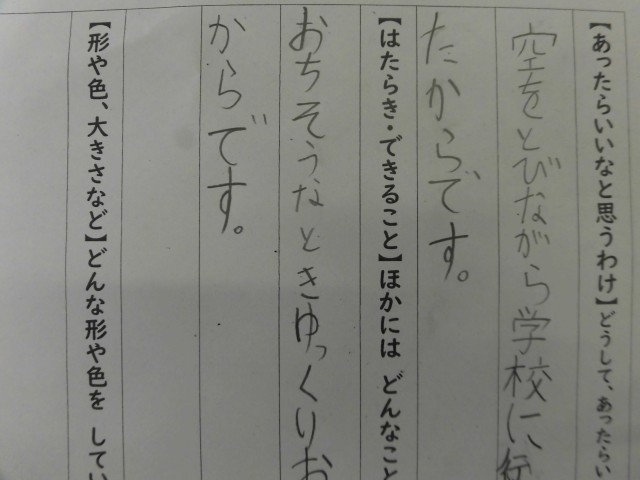 【あったらいいなと思うわけ】どうして、あったらい
空をとびながら学校に行
たからです。
【はたらき・できること】ほかには どんなこと
おちそうなときゆっくりお
からです。
【形や色、大きさなど】どんな形や色を してい